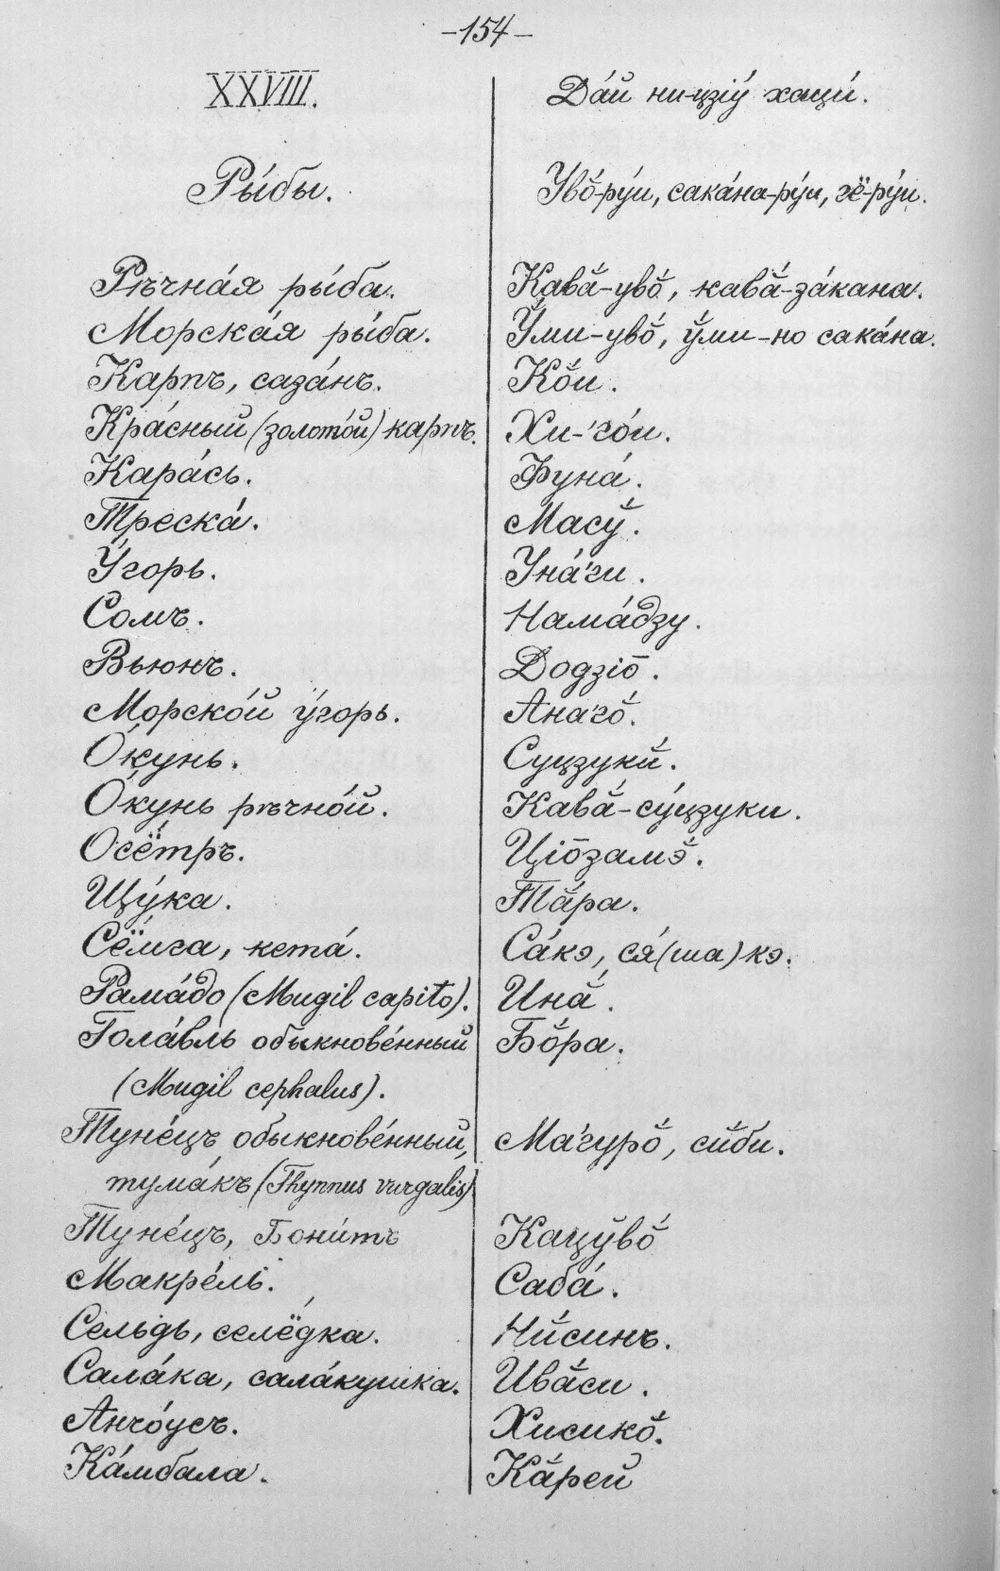 –154–
XXVIII.
Да́й ни-цзіу́ хаци́.
Ры́бы.
Уво̆-ру́и, сака́на-ру́и, гё-ру́и.
Рѣчна́я ры́ба.
Кавӑ́-уво̆́, кавӑ́-за́кана.
Морска́я ры́ба.
Ў́ми-уво̆́, ў́ми-но сака́на.
Карпъ, саза́нъ.
Ко̆́и.
Кра́сный (золото́й) карпъ.
Хи-'го́и.
Кара́сь.
Фуна́.
Треска́.
Масў́.
У́горь.
Уна́'ги.
Сомъ.
Нама́дзу.
Вьюнъ.
Додзіо̄.
Морско́й у́горь.
Ана'го̆́.
О́кунь.
Суцзукй́.
О́кунь рѣчно́й.
Кавӑ́-су́цзуки.
Осётръ.
Ціо̄замэ̆́.
Щу́ка.
Тӑ́ра.
Сёмга, кета́.
Са́кэ, ся́(ша)кэ.
Рама́до (Mugil capito).
Инӑ́.
Гола́вль обыкнове́нный
Бо̆́ра.
(Mugil cephalus).
Туне́цъ обыкнове́нный,
Ма'гуро̆́, сй́би.
тума́къ (Thynnus vurgalis)
Туне́цъ, Бони́тъ
Кацўво̆́
Макре́ль.
Саба́.
Сельдь, селёдка.
Нй́синъ.
Сала́ка, сала́кушка.
Ивӑ́си.
Анчо́усъ.
Хисико̆́.
Ка́мбала.
Кӑ́рей